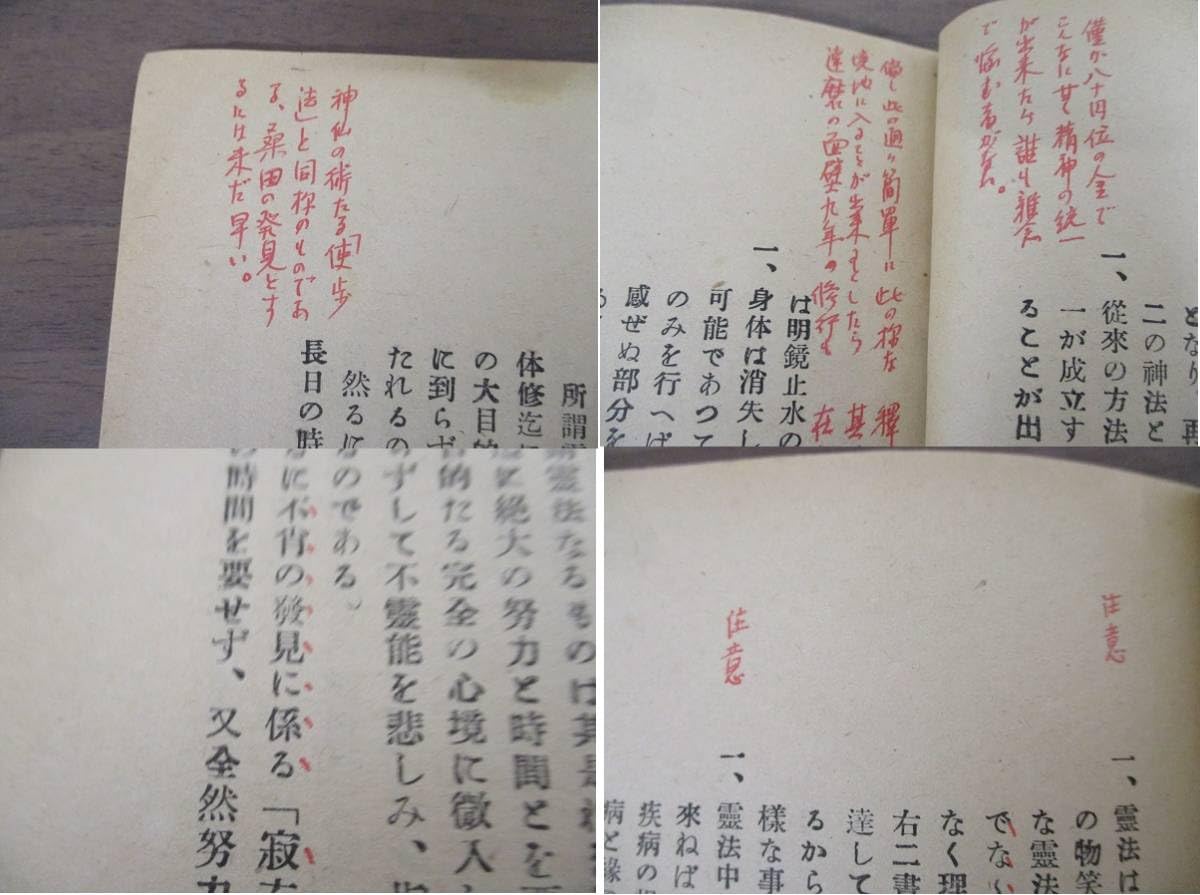 神仙の術たる「使歩
法」と同様のものであ
る、桑田の発見とす
るには未だ早い。
所謂靈
体修迄に
の大目的
に到らず
たれるの
然るに
長日の時
僅か八十円位の金で
こんなに甘く精神の統一
が出来たら誰も雑念
で悩む者がない。
となり 再
二の神法と
一、從來の方法
一が成立す
ることが出
此の通り簡單に此の様な
境地に入ることが出来るとしたら 其
達磨の面壁九年の修行も 在
は明鏡止水の
一、身体は消失し
可能であつて
のみを行へば
感ぜぬ部分を
靈法なるものは其
に絶大の努力と時間とを
的たる完全の心境に徹入
ずして不靈能を悲しみ、
のである。
に不肖の發見に係る「寂
時間を要せず、又全然努力
注意
注意
一、靈法は
の物笑
な靈法
でない
なく理
右二書
達して
るから
樣な事
一、靈法中
來ねば
疾病の
病と